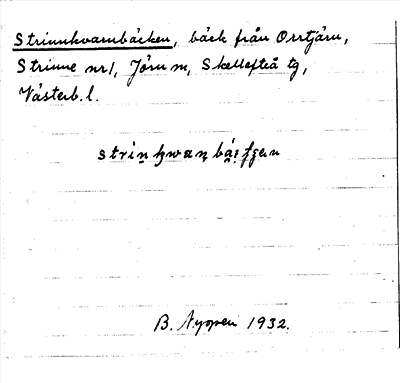 Strinnkvarnbäcken, bäck från Orrtjärn,
Strinne nr1, Jörn m, Skellefteå tg,
Västerb.l.
B. Nygren 1932.